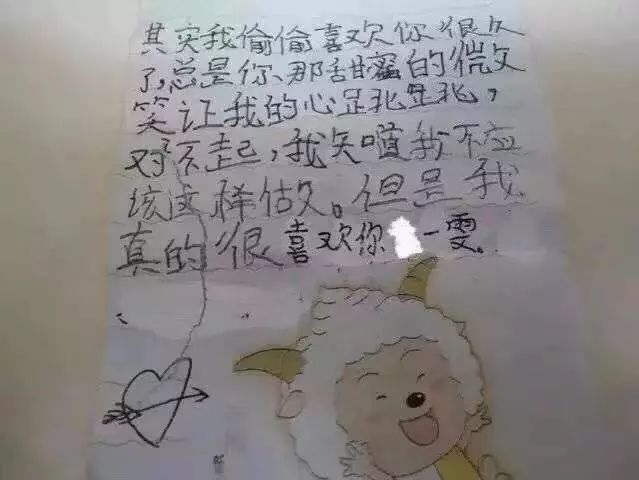 其实我偷偷喜欢你很久
了,总是你那甜蜜的微
笑让我的心跳跳,
对不起,我知道我不应
该这样做。但是我
真的很喜欢你一雯。